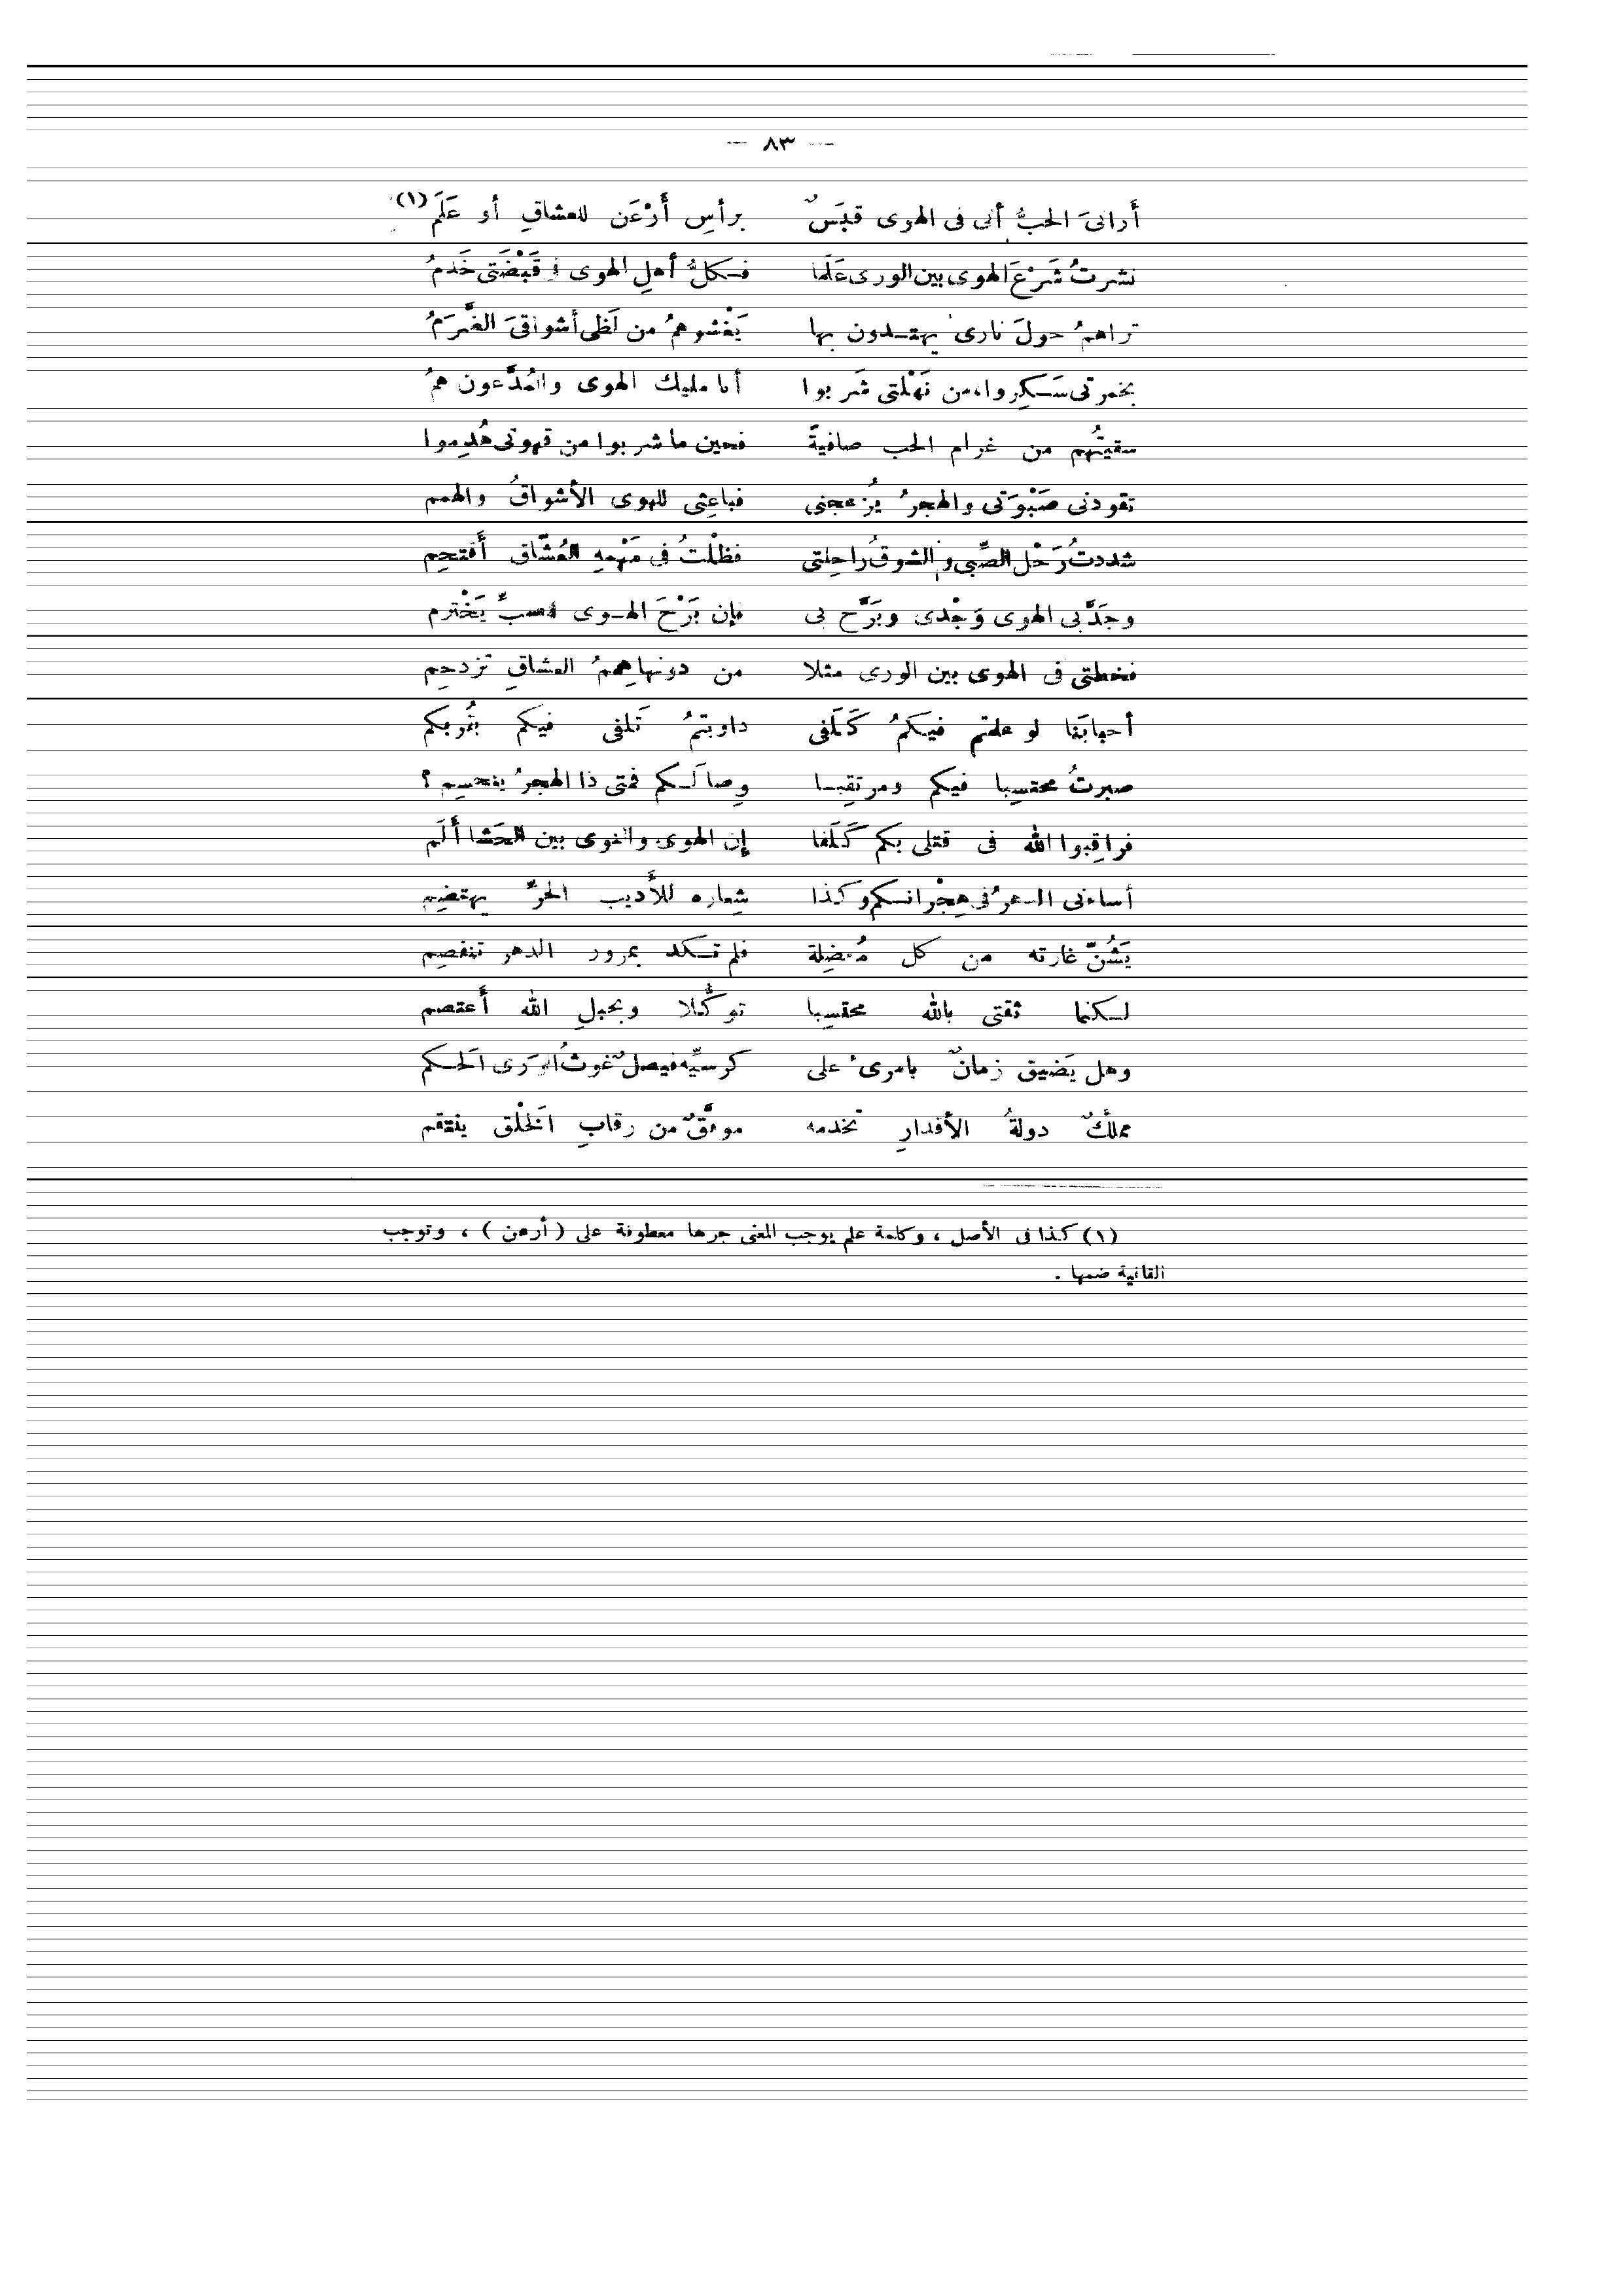 — ٨٣ —
أَرانىَ الحبُّ أنى فى الهوى قبَسٌ برأسِ أَرْعَن للعشاقِ أو عَلَمَ (١)
نشرتُ شَرْعَ الهوى بين الورى عَلَمًا فكلُّ أهلِ الهوى فى قَبْضَتى خَدَمُ
تراهمُ حولَ نارى يهتدون بها يَغْشوهمُ من لَظَى أشواقىَ الضَّرَمُ
بخمرتى سَكِروا، من نَهْلتى شَربوا أنا مليك الهوى والمُدَّعون همُ
سقيتُهم من غرام الحب صافيةً فحين ما شربوا من قهوتى هُدِموا
تقودنى صَبْوَتى والهجرُ يُزعجنى فباعِثى للهوى الأشواقُ والهمم
شددتُ رَحْل الصِّبى والشوقُ راحِلتى فظلْتُ فى مَهْمهِ العُشَّاق أَقتحِم
وجَدَّ بى الهوى وَجْدى وبَرَّح بى فإن بَرْحَ الهوى يَخْترم
فخطتى فى الهوى بين الورى مثلا من دونها هِممُ العشاقِ تزدحِم
أحبابَنا لو علمتم فيكمُ كَلَفى داويتمُ تَلفى فيكم بقُربكم
صبرتُ محتسِبا فيكم ومرتقِبا وِصالَكم فمتى ذا الهجرُ ينحسِم ؟
فراقِبوا الله فى قتلى بكم كَلَفا إن الهوى والنوى بين الحَشا أَلَم
أساءنى الدهرُ فى هِجْرانكم وكذا شِعاره للأَديب الحرِّ يهتضِم
يَشُنّ غارته من كل مُعضِلة فلم تكد بمرور الدهر تنفصِم
لكنما ثقتى بالله محتسِبا توكُّلا وبحبلِ الله أَعتصم
وهل يَضيق زمانٌ بامرىء على كرسيِّه فيصلٌ غوثُ الورَى الحَكم
مملَّكٌ دولةُ الأقدارِ تخدمه موفَّقٌ من رقابِ الخَلْق ينتقم
(١) كذا فى الأصل ، وكلمة علم يوجب المعنى جرها معطوفة على ( أرعن ) ، وتوجب
القافية ضمها .